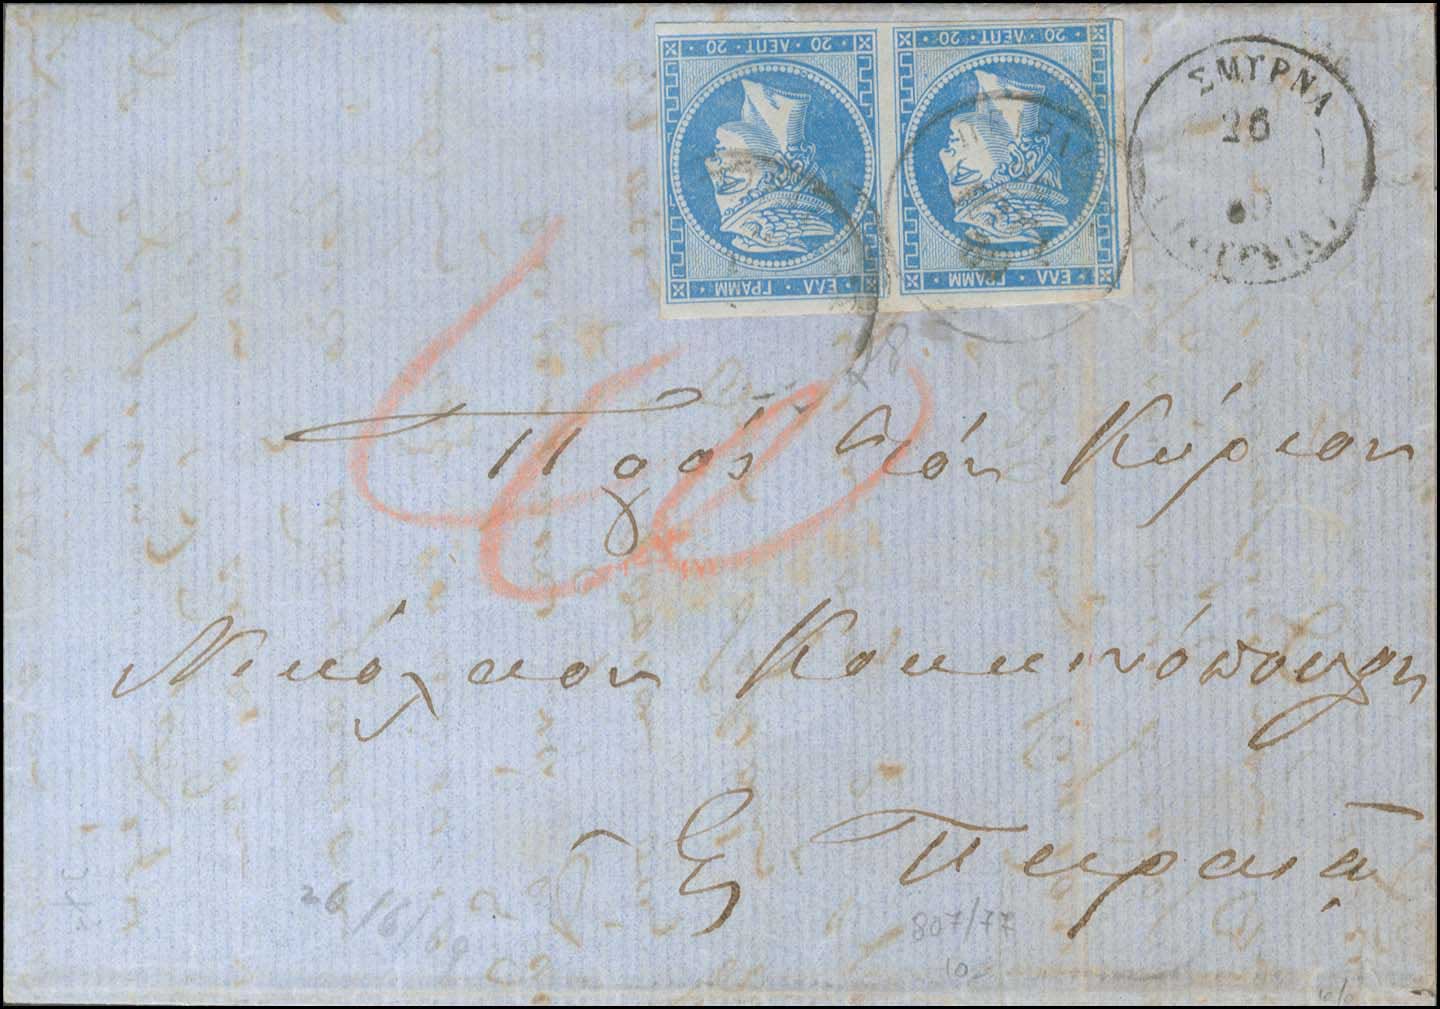 20 · ΛΕΠΤ · 20
ΕΛΛ · ΓΡΑΜΜ
20 · ΛΕΠΤ · 20
ΕΛΛ · ΓΡΑΜΜ
ΣΜΥΡΝΑ
26
60
28
Πρὸς τὸν Κύριον
Νικόλαον Κοκκινόπουλον
Εἰς Πειραιᾶ
26/6/69
807/77
102